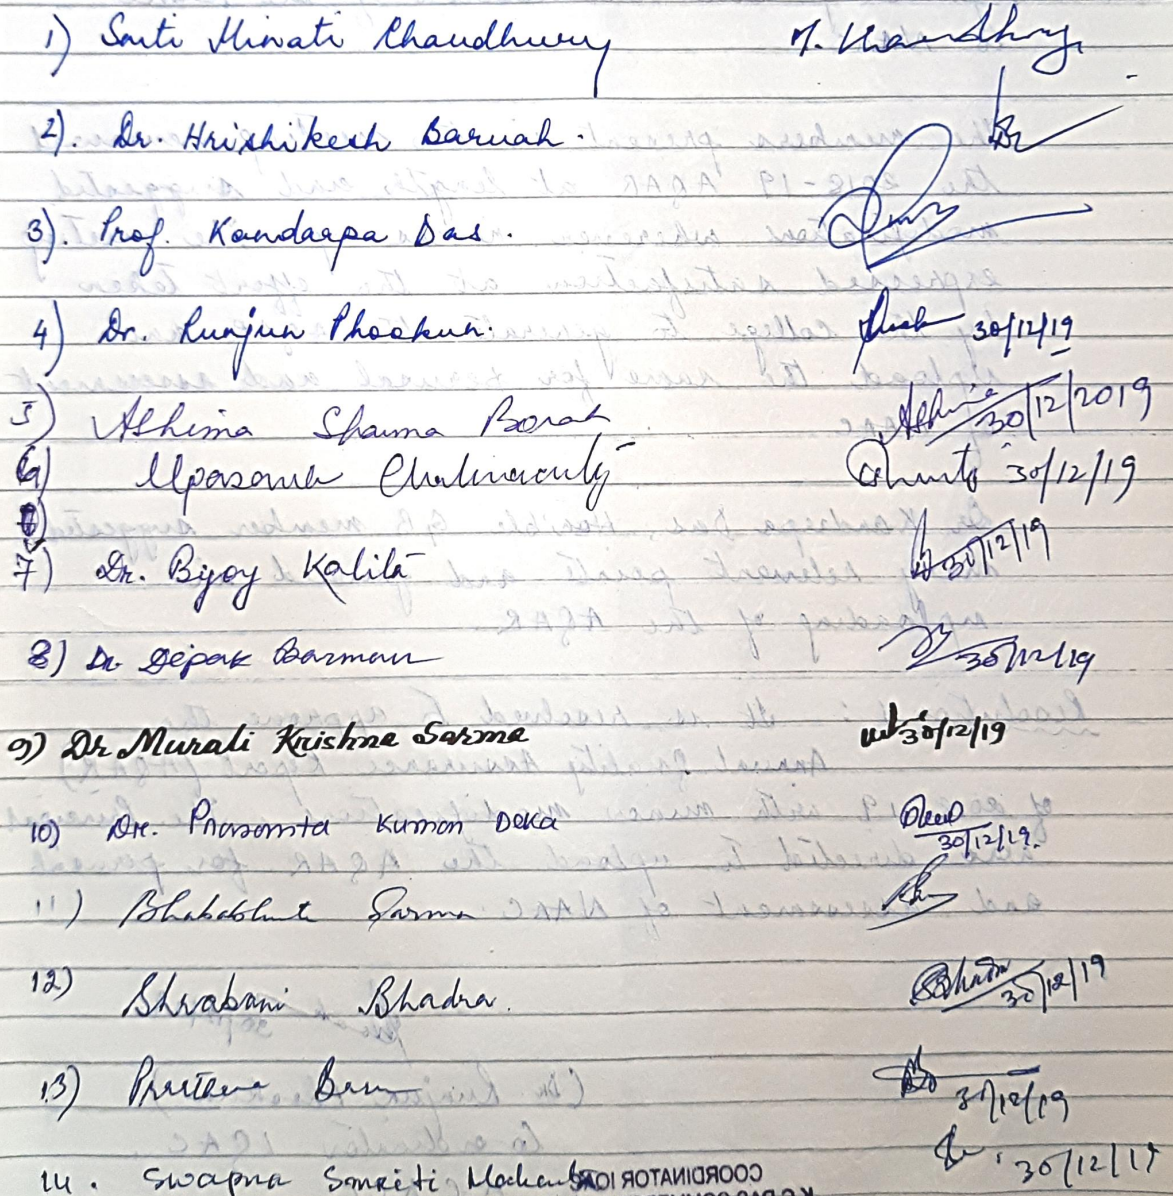 1) Smti Minati Chaudhury M. Chaudhury
2). Dr. Hrishikesh Baruah.
3). Prof. Kandarpa Das.
4) Dr. Runjun Phookun. 30/12/19
5) Ashima Sharma Borah Ashima 30/12/2019
6) Upasana Chakravarty 30/12/19
7) Dr. Bijoy Kalita 30/12/19
8) Dr Dipak Barman 30/12/19
9) Dr Murali Krishna Sarma 30/12/19
10) Dr. Prasanta Kumar Deka 30/12/19.
11) Sarma
12) Shrabani Bhadra. SBhadra 30/12/19
13) 30/12/19
14. Swapna Smriti 30/12/19
COORDINATOR